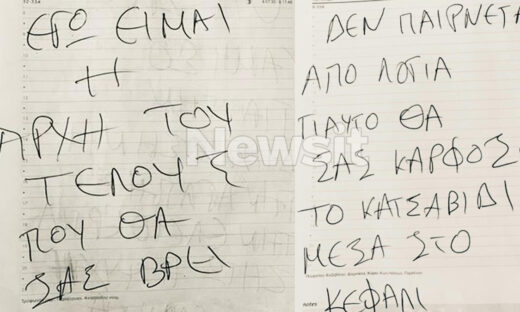 ΕΓΩ ΕΙΜΑΙ
Η
ΑΡΧΗ ΤΟΥ
ΤΕΛΟΥΣ
ΠΟΥ ΘΑ
ΣΑΣ ΒΡΕΙ
ΔΕΝ ΠΑΙΡΝΕΤΑ
ΑΠΟ ΛΟΓΙΑ
ΓΙΑΥΤΟ ΘΑ
ΣΑΣ ΚΑΡΦΟΣ
ΤΟ ΚΑΤΣΑΒΙΔΙ
ΜΕΣΑ ΣΤΟ
notes
ΚΕΦΑΛΙ
Newsit